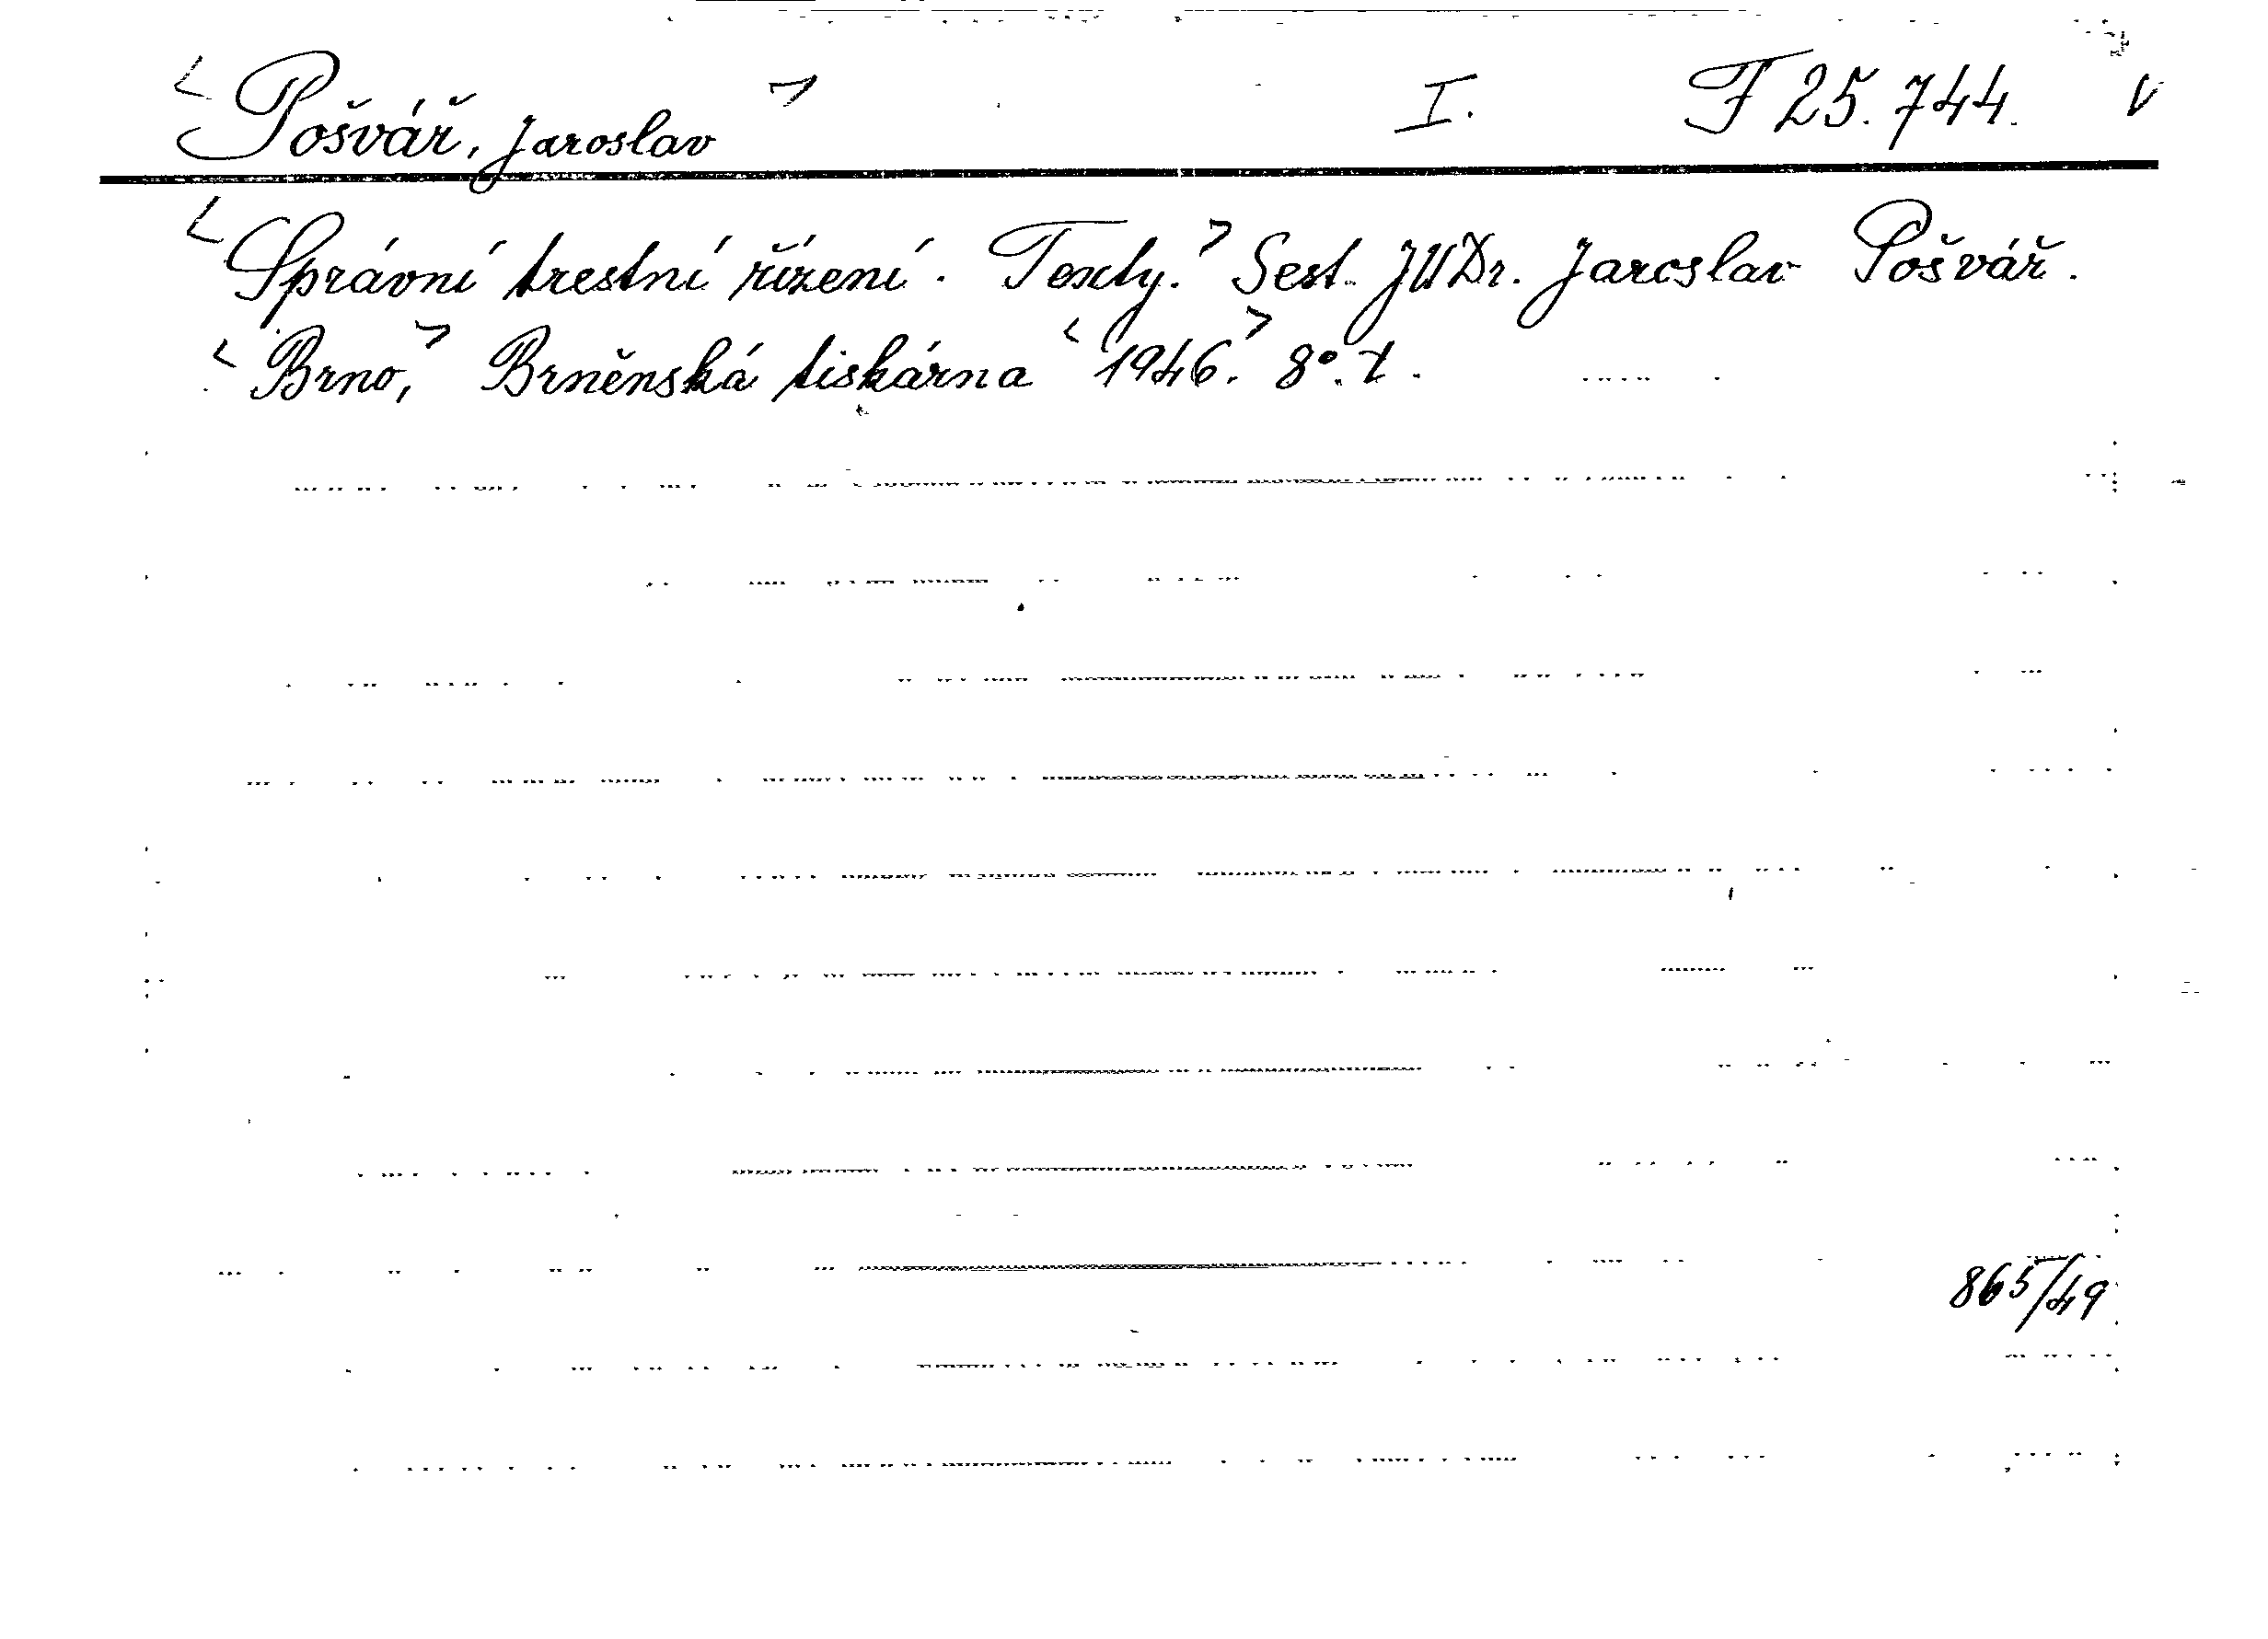 < Pošvář, Jaroslav > I. F 25.744. V
< Správní trestní řízení. Texty. > Sest. JUDr. Jaroslav Pošvář.
< Brno, > Brněnská tiskárna < 1946. > 8°.
865/49